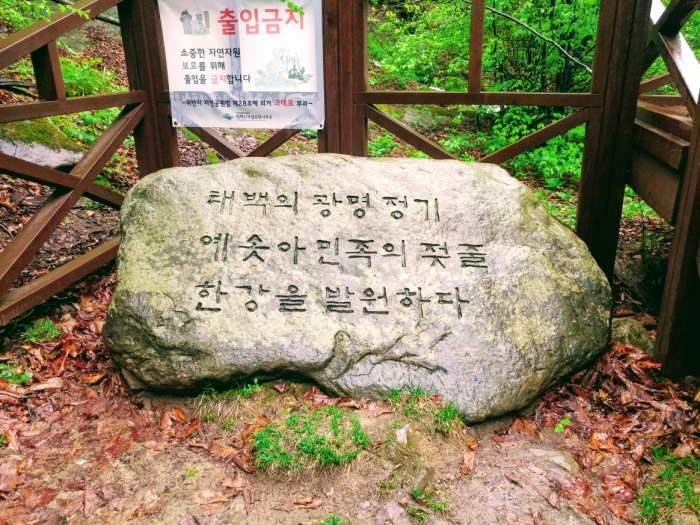 출입금지
소중한 자연자원
보호를 위해
출입을 금지합니다
~위반시 자연공원법 제28조에 의거 과태료 부과~
태백의 광명정기
예 솟아 민족의 젖줄
한강을 발원하다